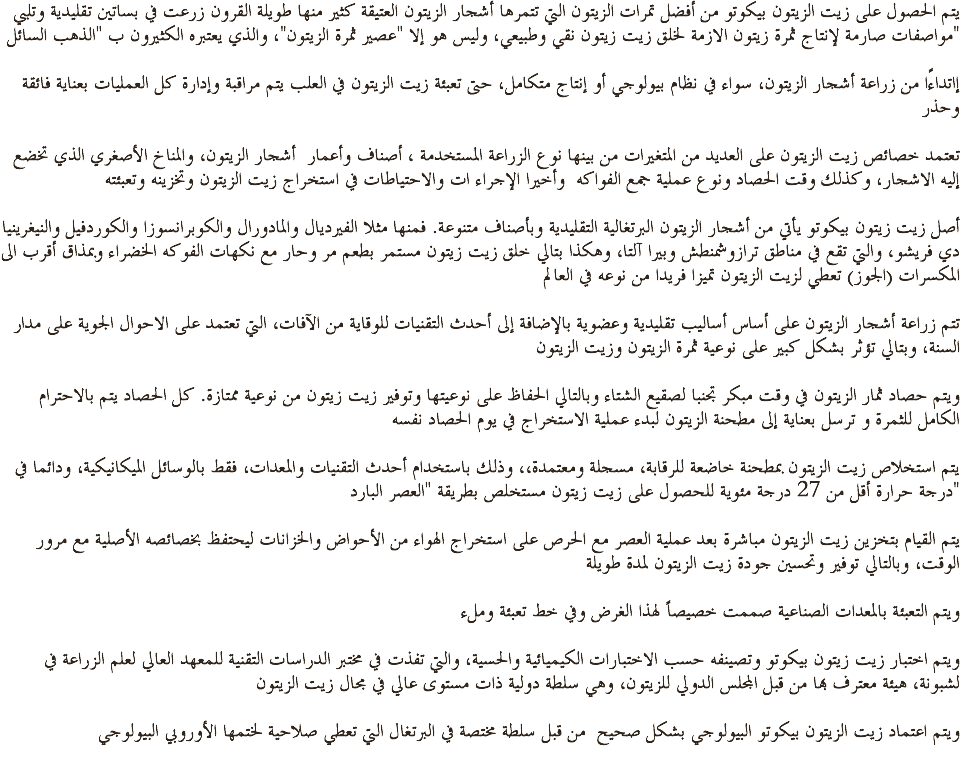 يتم الحصول على زيت الزيتون بيكوتو من أفضل ثمرات الزيتون التي تتمرها أشجار الزيتون العتيقة كثير منها طويلة القرون زرعت في بساتين تقليدية وتلبي
"مواصفات صارمة لإنتاج ثمرة زيتون الازمة لخلق زيت زيتون نقي وطبيعي، وليس هو إلا "عصير ثمرة الزيتون"، والذي يعتبره الكثيرون ب "الذهب السائل
إاتداءًا من زراعة أشجار الزيتون، سواء في نظام بيولوجي أو إنتاج متكامل، حتى تعبئة زيت الزيتون في العلب يتم مراقبة وإدارة كل العمليات بعناية فائقة
وحذر
تعتمد خصائص زيت الزيتون على العديد من المتغيرات من بينها نوع الزراعة المستخدمة ، أصناف وأعمار أشجار الزيتون، والمناخ الأصغري الذي تخضع
إليه الاشجار، وكذلك وقت الحصاد ونوع عملية جمع الفواكه وأخيرا الإجراء ات والاحتياطات في استخراج زيت الزيتون وتخزينه وتعبئته
أصل زيت زيتون بيكوتو يأتي من أشجار الزيتون البرتغالية التقليدية وبأصناف متنوعة. فمنها مثلا الفيرديال والمادورال والكوبرانسوزا والكوردفيل والنيغرينيا
دي فريشو، والتي تقع في مناطق ترازوشمنطش وبيرا آلتا، وهكذا بتالي خلق زيت زيتون مستمر بطعم مر وحار مع نكهات الفوكه الخضراء وبمذاق أقرب الى
المكسرات (الجوز) تعطي لزيت الزيتون تميزا فريدا من نوعه في العالم
تتم زراعة أشجار الزيتون على أساس أساليب تقليدية وعضوية بالإضافة إلى أحدث التقنيات للوقاية من الآفات، التي تعتمد على الاحوال الجوية على مدار
السنة، وبتالي تؤثر بشكل كبير على نوعية ثمرة الزيتون وزيت الزيتون
ويتم حصاد ثمار الزيتون في وقت مبكر تجنبا لصقيع الشتاء وبالتالي الحفاظ على نوعيتها وتوفير زيت زيتون من نوعية ممتازة. كل الحصاد يتم بالاحترام
الكامل للثمرة و ترسل بعناية إلى مطحنة الزيتون لبدء عملية الاستخراج في يوم الحصاد نفسه
يتم استخلاص زيت الزيتون بمطحنة خاضعة للرقابة، مسجلة ومعتمدة،، وذلك باستخدام أحدث التقنيات والمعدات، فقط بالوسائل الميكانيكية، ودائما في
"درجة حرارة أقل من 27 درجة مئوية للحصول على زيت زيتون مستخلص بطريقة "العصر البارد
يتم القيام بتخزين زيت الزيتون مباشرة بعد عملية العصر مع الحرص على استخراج الهواء من الأحواض والخزانات ليحتفظ بخصائصه الأصلية مع مرور
الوقت، وبالتالي توفير وتحسين جودة زيت الزيتون لمدة طويلة
ويتم التعبئة بالمعدات الصناعية صممت خصيصاً لهذا الغرض وفي خط تعبئة وملء
ويتم اختبار زيت زيتون بيكوتو وتصينفه حسب الاختبارات الكيميائية والحسية، والتي تفذت في مختبر الدراسات التقنية للمعهد العالي لعلم الزراعة في
لشبونة، هيئة معترف بها من قبل المجلس الدولي للزيتون، وهي سلطة دولية ذات مستوى عالي في مجال زيت الزيتون
ويتم اعتماد زيت الزيتون بيكوتو البيولوجي بشكل صحيح من قبل سلطة مختصة في البرتغال التي تعطي صلاحية لختمها الأوروبي البيولوجي